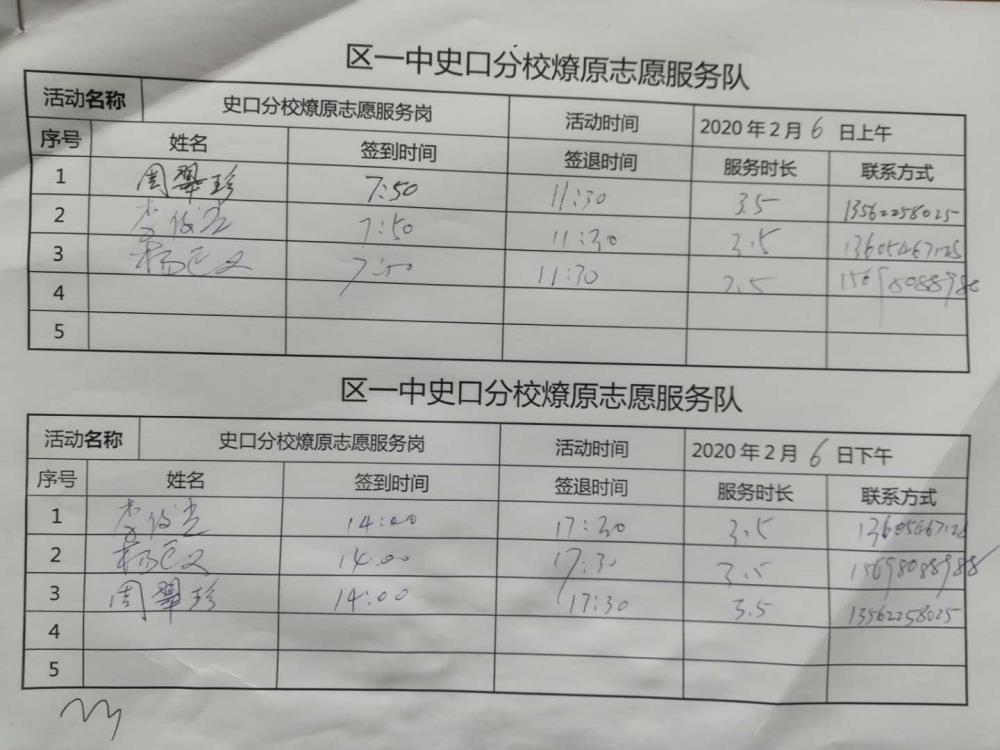 区一中史口分校燎原志愿服务队
活动名称 史口分校燎原志愿服务岗 活动时间 2020年2月6日上午
序号 姓名 签到时间 签退时间 服务时长 联系方式
1 周翠珍 7:50 11:30 3.5 13562258025
2 7:50 11:30 3.5
3 7:50 11:30 3.5 15698088988
4
5
区一中史口分校燎原志愿服务队
活动名称 史口分校燎原志愿服务岗 活动时间 2020年2月6日下午
序号 姓名 签到时间 签退时间 服务时长 联系方式
1 14:00 17:30 3.5
2 14:00 17:30 3.5 15698088988
3 周翠珍 14:00 17:30 3.5 13562258025
4
5